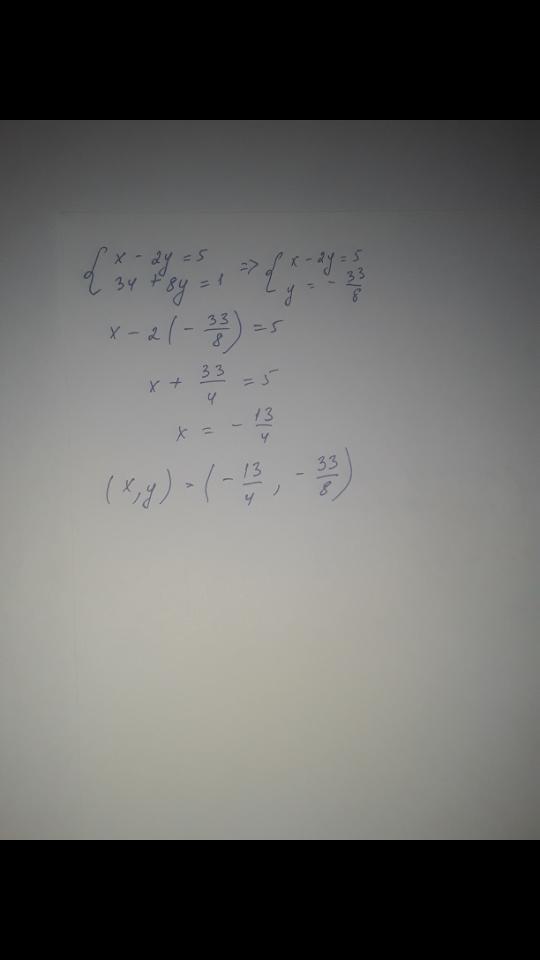 { x - 2y = 5
34 + 8y = 1 => { x - 2y = 5
y = - 33/8
x - 2 ( - 33/8 ) = 5
x + 33/4 = 5
x = - 13/4
(x, y) = ( - 13/4 , - 33/8 )